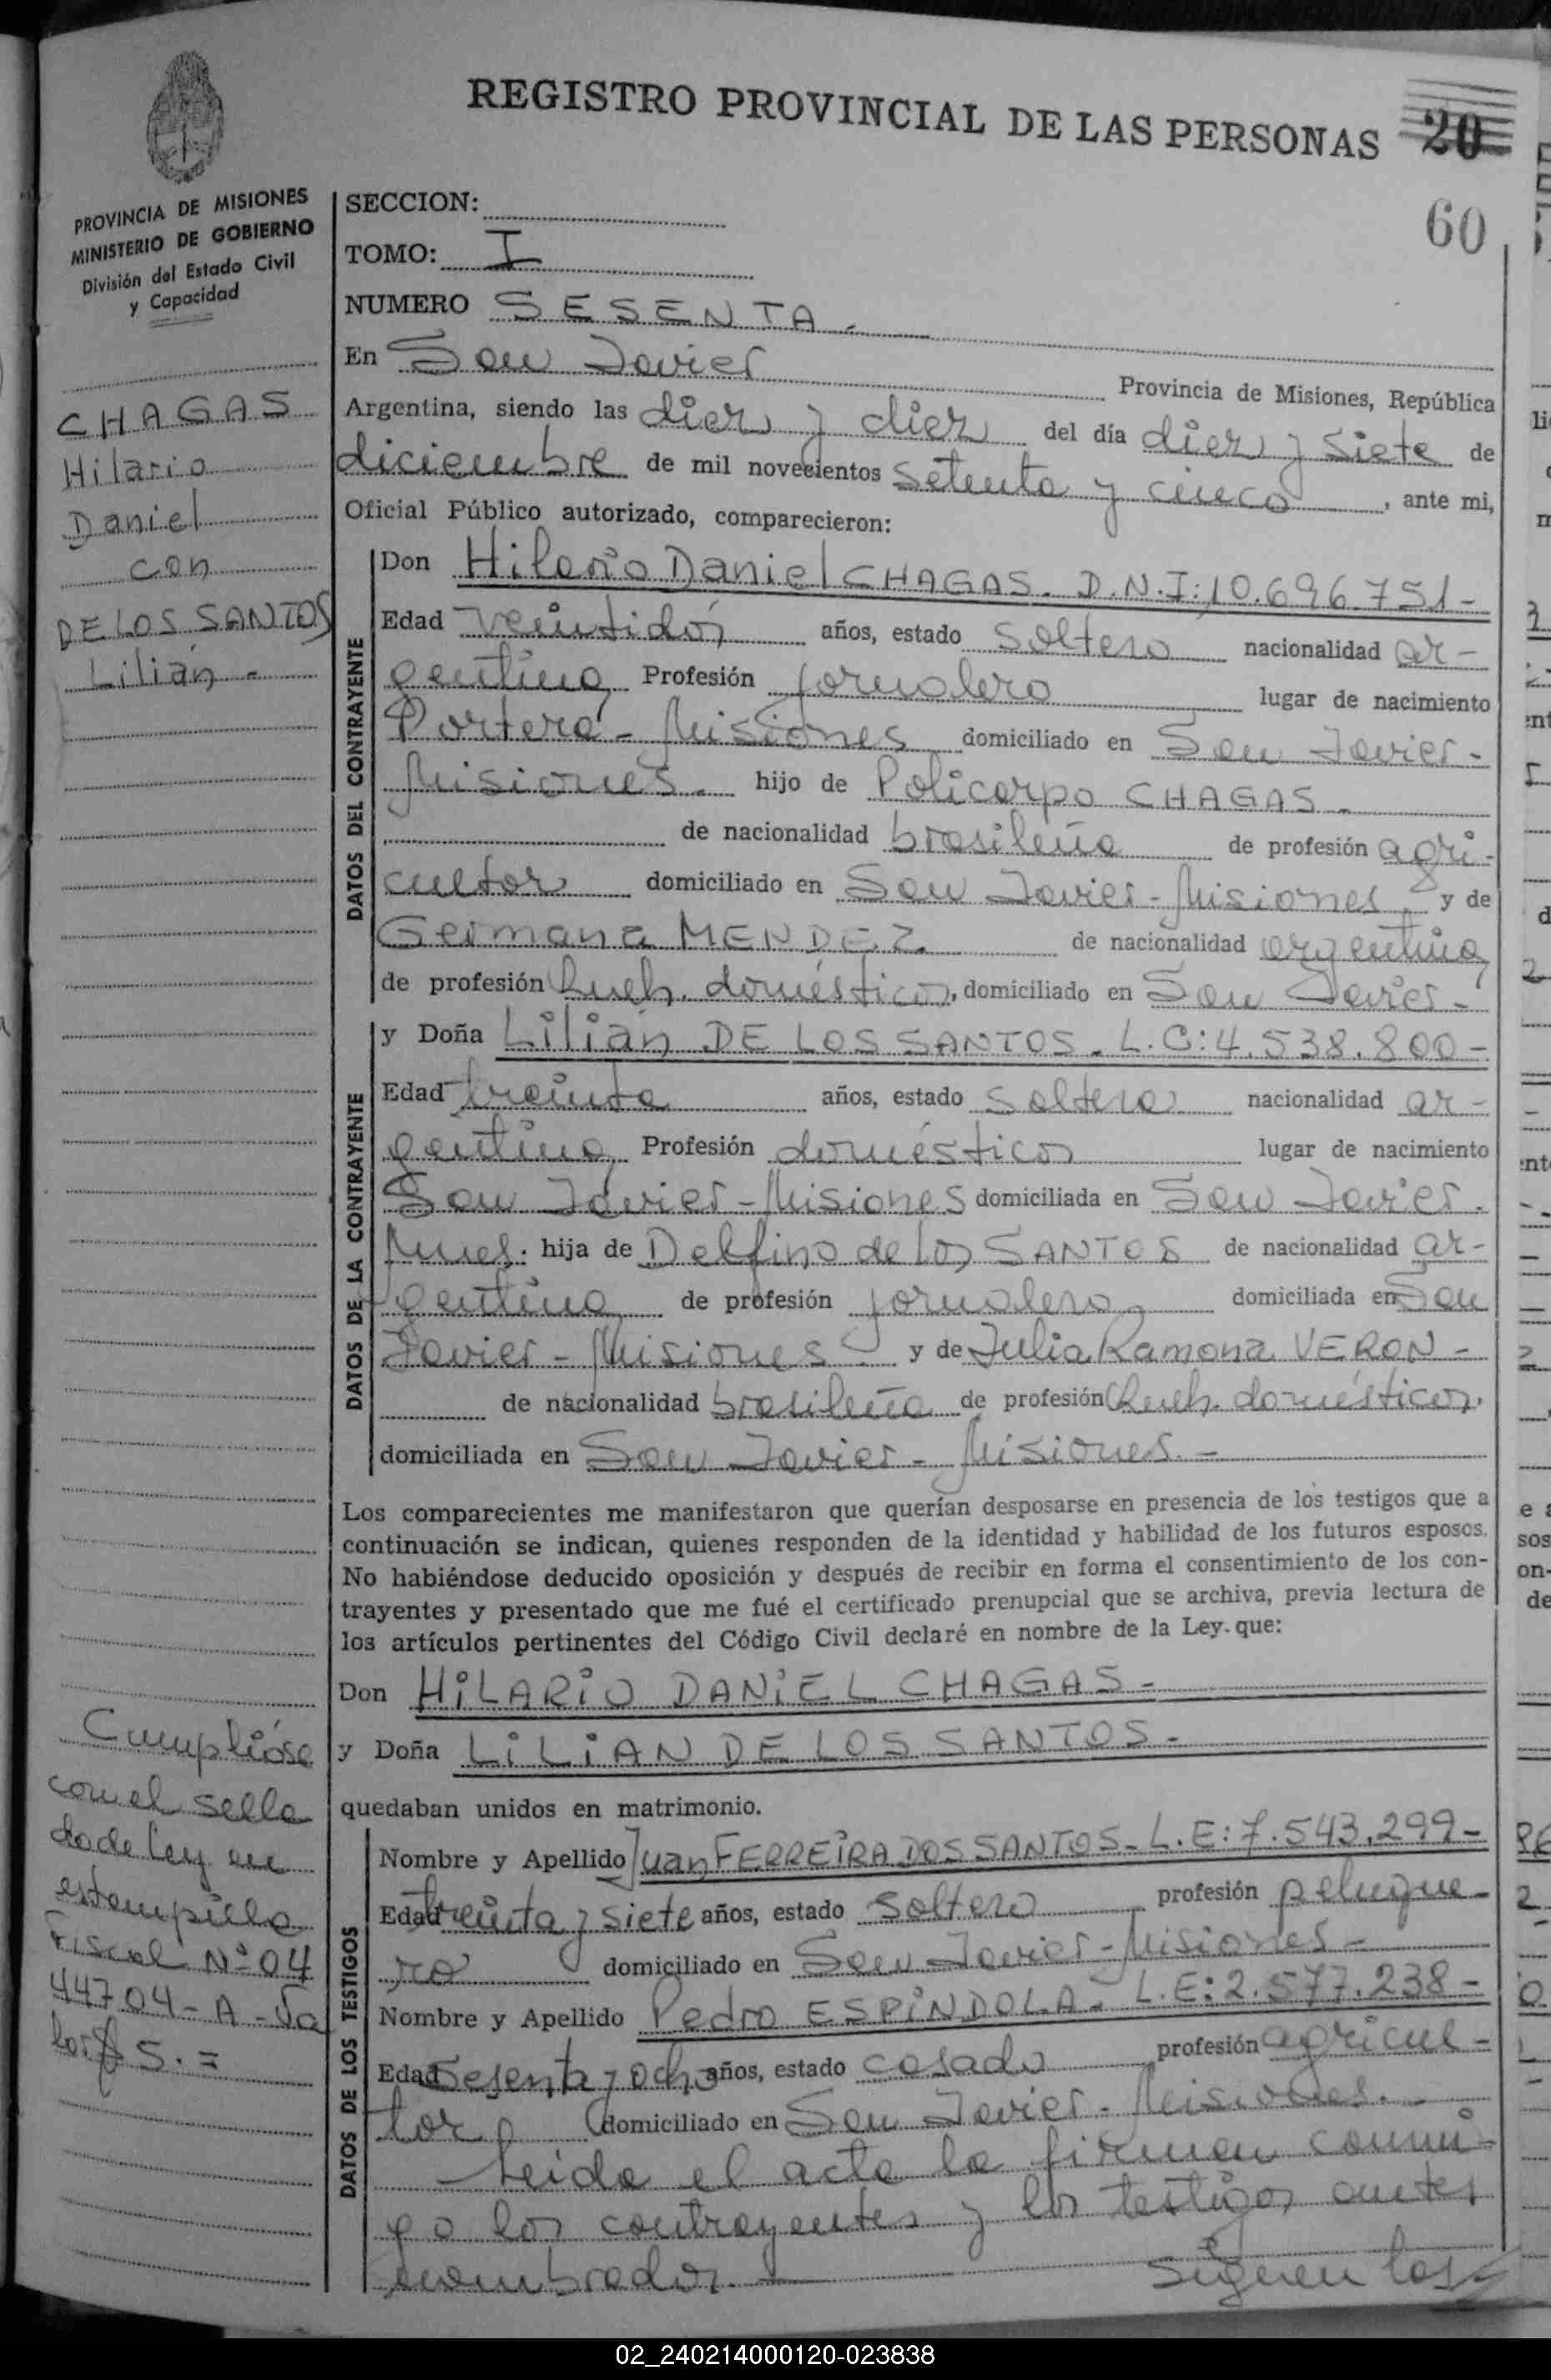 REGISTRO PROVINCIAL DE LAS PERSONAS 20
60
PROVINCIA DE MISIONES
MINISTERIO DE GOBIERNO
División del Estado Civil
y Capacidad
CHAGAS
Hilario
Daniel
con
DE LOS SANTOS
Lilián -
Cumplióse
con el sella
do de ley en
estampilla
Fiscal Nº 04
44704-A-Va
lor $ 5.=
SECCION:
TOMO: I
NUMERO SESENTA.
En San Javier Provincia de Misiones, República
Argentina, siendo las diez y diez del día diez y siete de
diciembre de mil novecientos setenta y cinco, ante mi,
Oficial Público autorizado, comparecieron:
DATOS DEL CONTRAYENTE
Don Hilario Daniel CHAGAS. D.N.I: 10.696.751-
Edad veintidós años, estado soltero nacionalidad ar-
gentina Profesión jornalero lugar de nacimiento
Portera - Misiones domiciliado en San Javier -
Misiones. hijo de Policarpo CHAGAS -
de nacionalidad brasileña de profesión agri-
cultor domiciliado en San Javier - Misiones y de
Germana MENDEZ. de nacionalidad argentina
de profesión Queh. domésticos, domiciliado en San Javier -
DATOS DE LA CONTRAYENTE
y Doña Lilián DE LOS SANTOS. L.C: 4.538.800-
Edad treinta años, estado soltera nacionalidad ar-
gentina Profesión domésticos lugar de nacimiento
San Javier - Misiones domiciliada en San Javier.
Mnes. hija de Delfino de los SANTOS de nacionalidad ar-
gentina de profesión jornalero domiciliada en San
Javier - Misiones y de Julia Ramona VERON -
de nacionalidad brasileña de profesión Queh. domésticos.
domiciliada en San Javier - Misiones. -
Los comparecientes me manifestaron que querían desposarse en presencia de los testigos que a
continuación se indican, quienes responden de la identidad y habilidad de los futuros esposos.
No habiéndose deducido oposición y después de recibir en forma el consentimiento de los con-
trayentes y presentado que me fué el certificado prenupcial que se archiva, previa lectura de
los artículos pertinentes del Código Civil declaré en nombre de la Ley. que:
Don HiLARiO DANiEL CHAGAS -
y Doña LiLiAN DE LOS SANTOS -
quedaban unidos en matrimonio.
DATOS DE LOS TESTIGOS
Nombre y Apellido Juan FERREiRA DOS SANTOS - L.E: 7.543.299-
Edad treinta y siete años, estado soltero profesión peluque-
ro domiciliado en San Javier - Misiones -
Nombre y Apellido Pedro ESPiNDOLA - L.E: 2.577.238-
Edad sesenta y ocho años, estado casado profesión agricul-
tor domiciliado en San Javier - Misiones. -
Leida el acta la firman conmi-
go los contrayentes y los testigos antes
nombrados. -
Siguen las
02_240214000120-023838